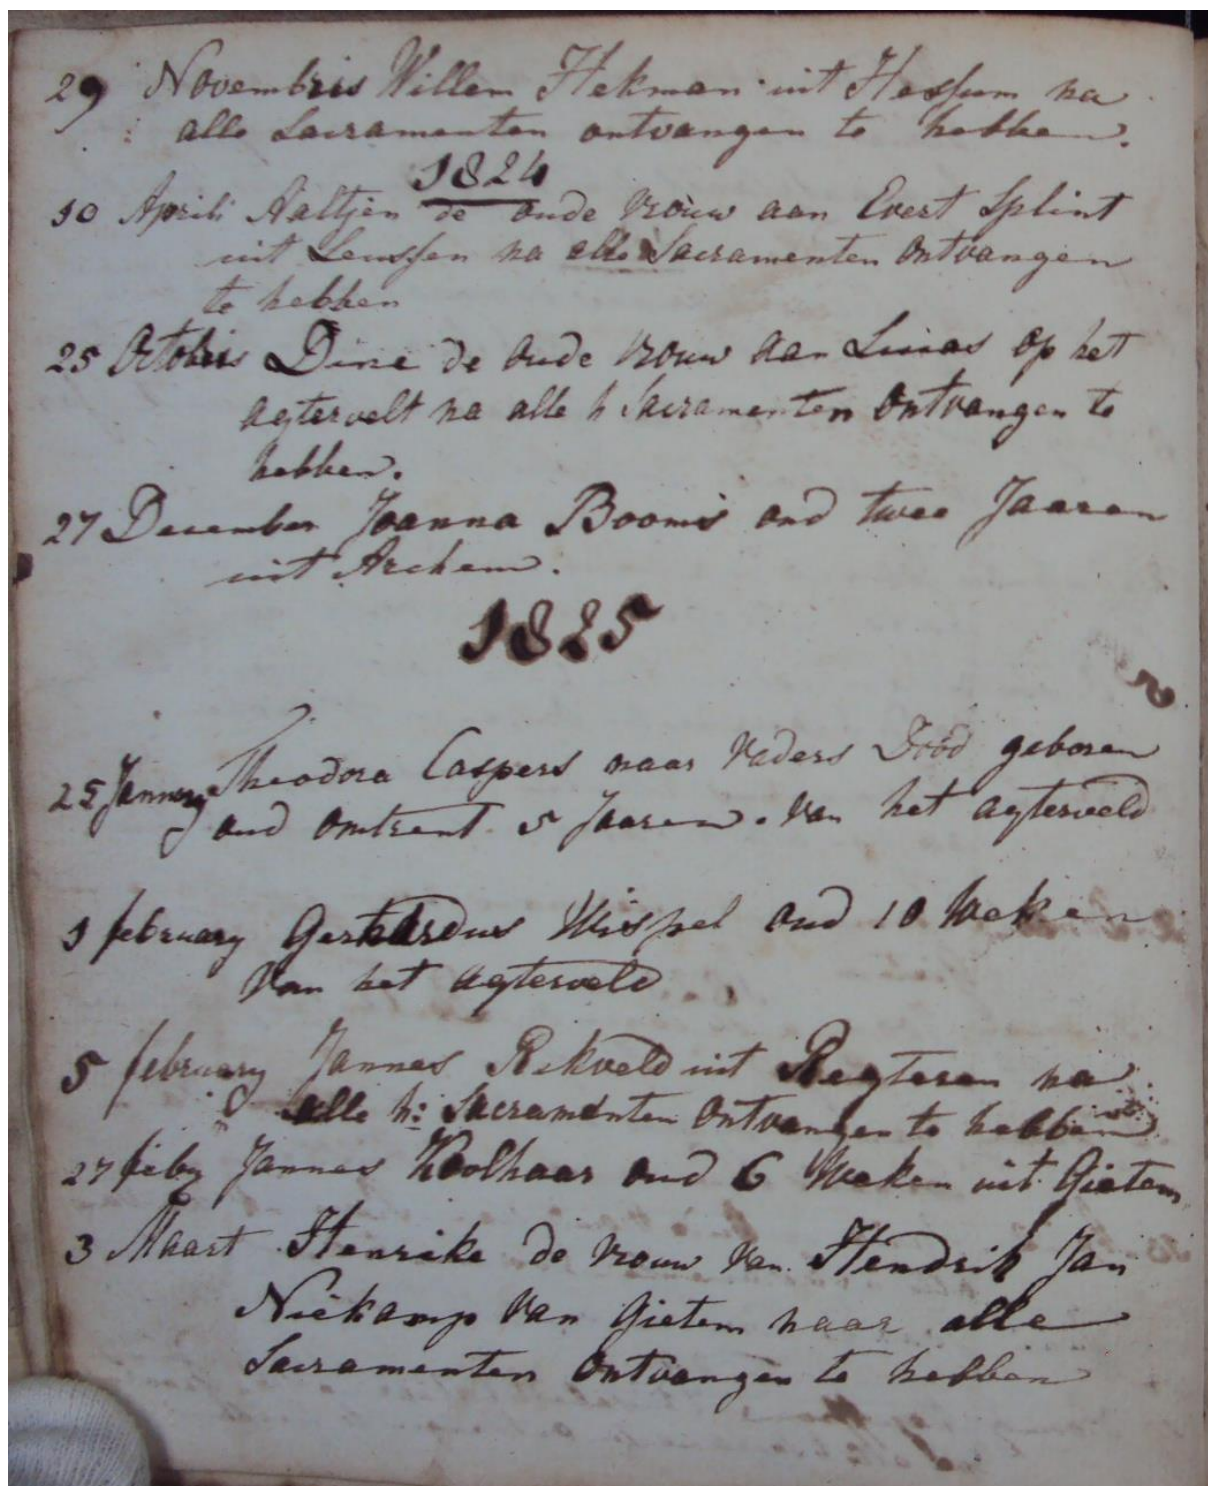 29 Novembris Willem Hekman uit Hessum na
alle Sacramenten ontvangen te hebben.
1824
10 Aprili Aaltjen de oude vrouw aan Evert Splint
uit Lenssen na alle Sacramenten ontvangen
te hebben
25 Octobris Dine de oude vrouw aan Lucas op het
agtervelt na alle h Sacramenten ontvangen te
hebben.
27 December Joanna Booms oud twee Jaaren
uit Archem.
1825
25 January Theodora Caspers naar vaders Dood geboren
oud omtrent 5 Jaaren. van het agterveld
1 february Gerhardus Wispel oud 10 Weken
van het agterveld
5 february Jannes Rikveld uit Regteren na
alle h: Sacramenten ontvangen te hebben
27 feby Jannes Koolhaar oud 6 Weken uit Gietem
3 Maart Henrike de vrouw van Hendrik Jan
Niekamp van Gietem naar alle
Sacramenten ontvangen te hebben